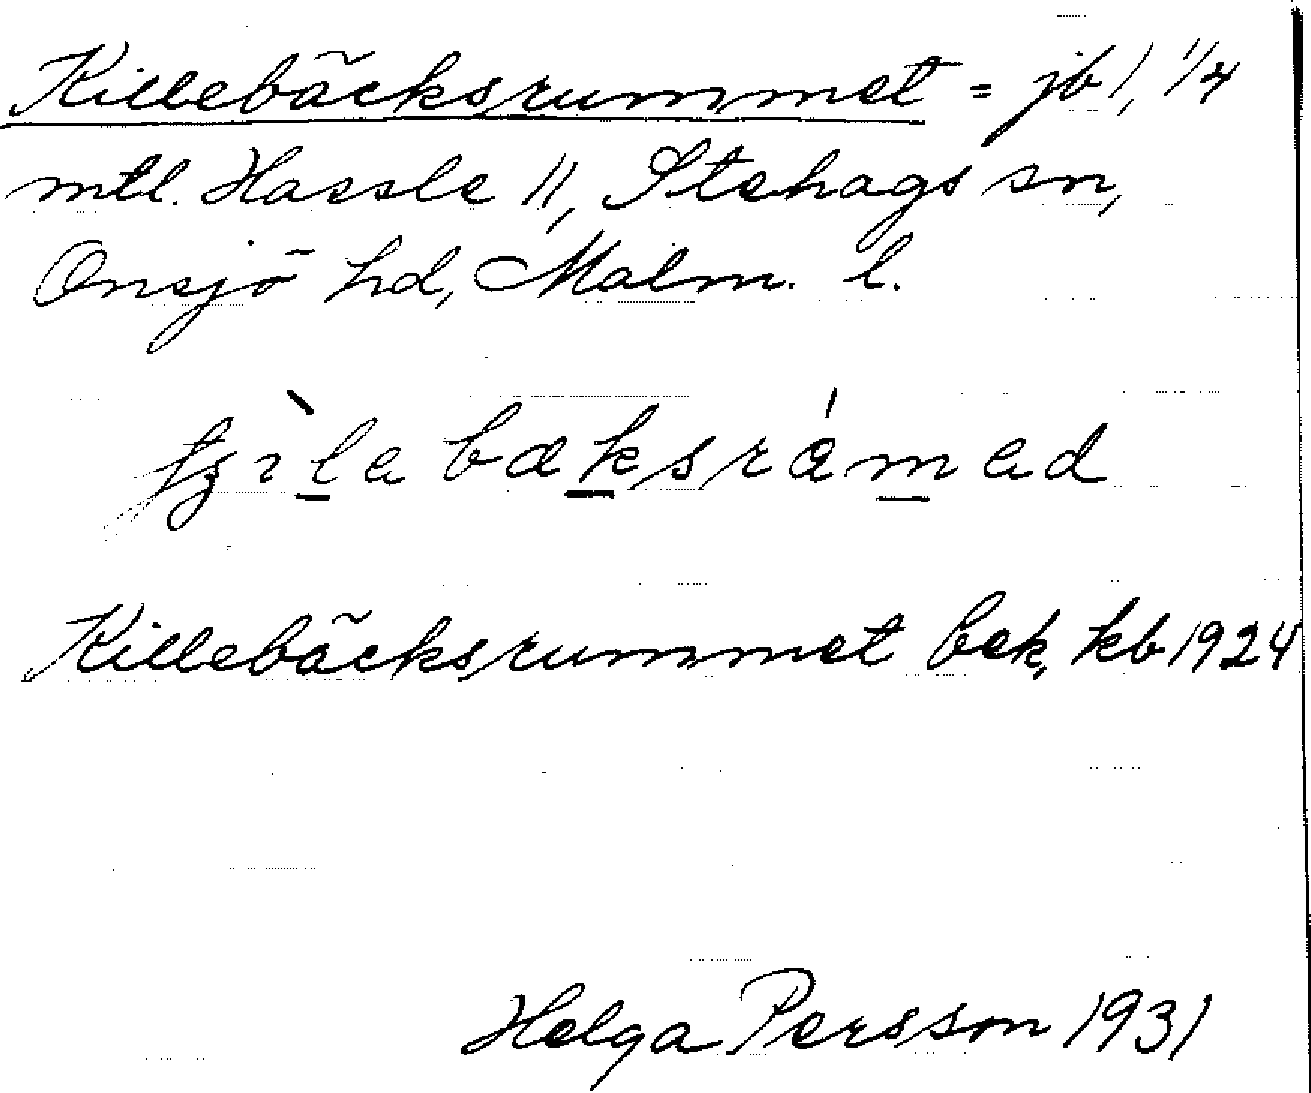 Killebäcksrummet = jb 1, 1/4
mtl. Hassle 11, Stehags sn,
Onsjö hd, Malm. l.
Killebäcksrummet bek, kb 1924
Helga Persson 1931